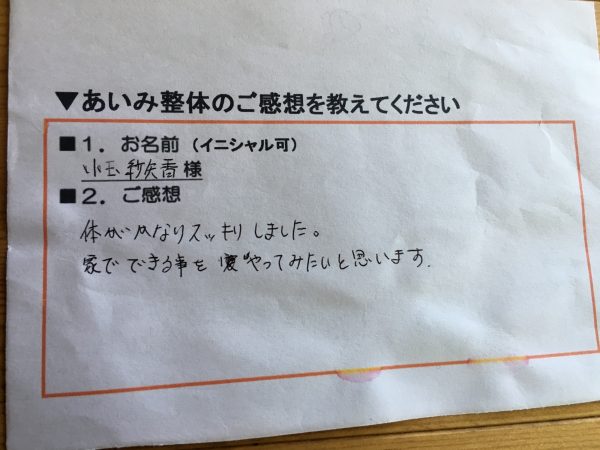 ▼あいみ整体のご感想を教えてください
■1．お名前（イニシャル可）
小玉 香様
■2．ご感想
体がかなりスッキリしました。
家でできる事をやってみたいと思います.